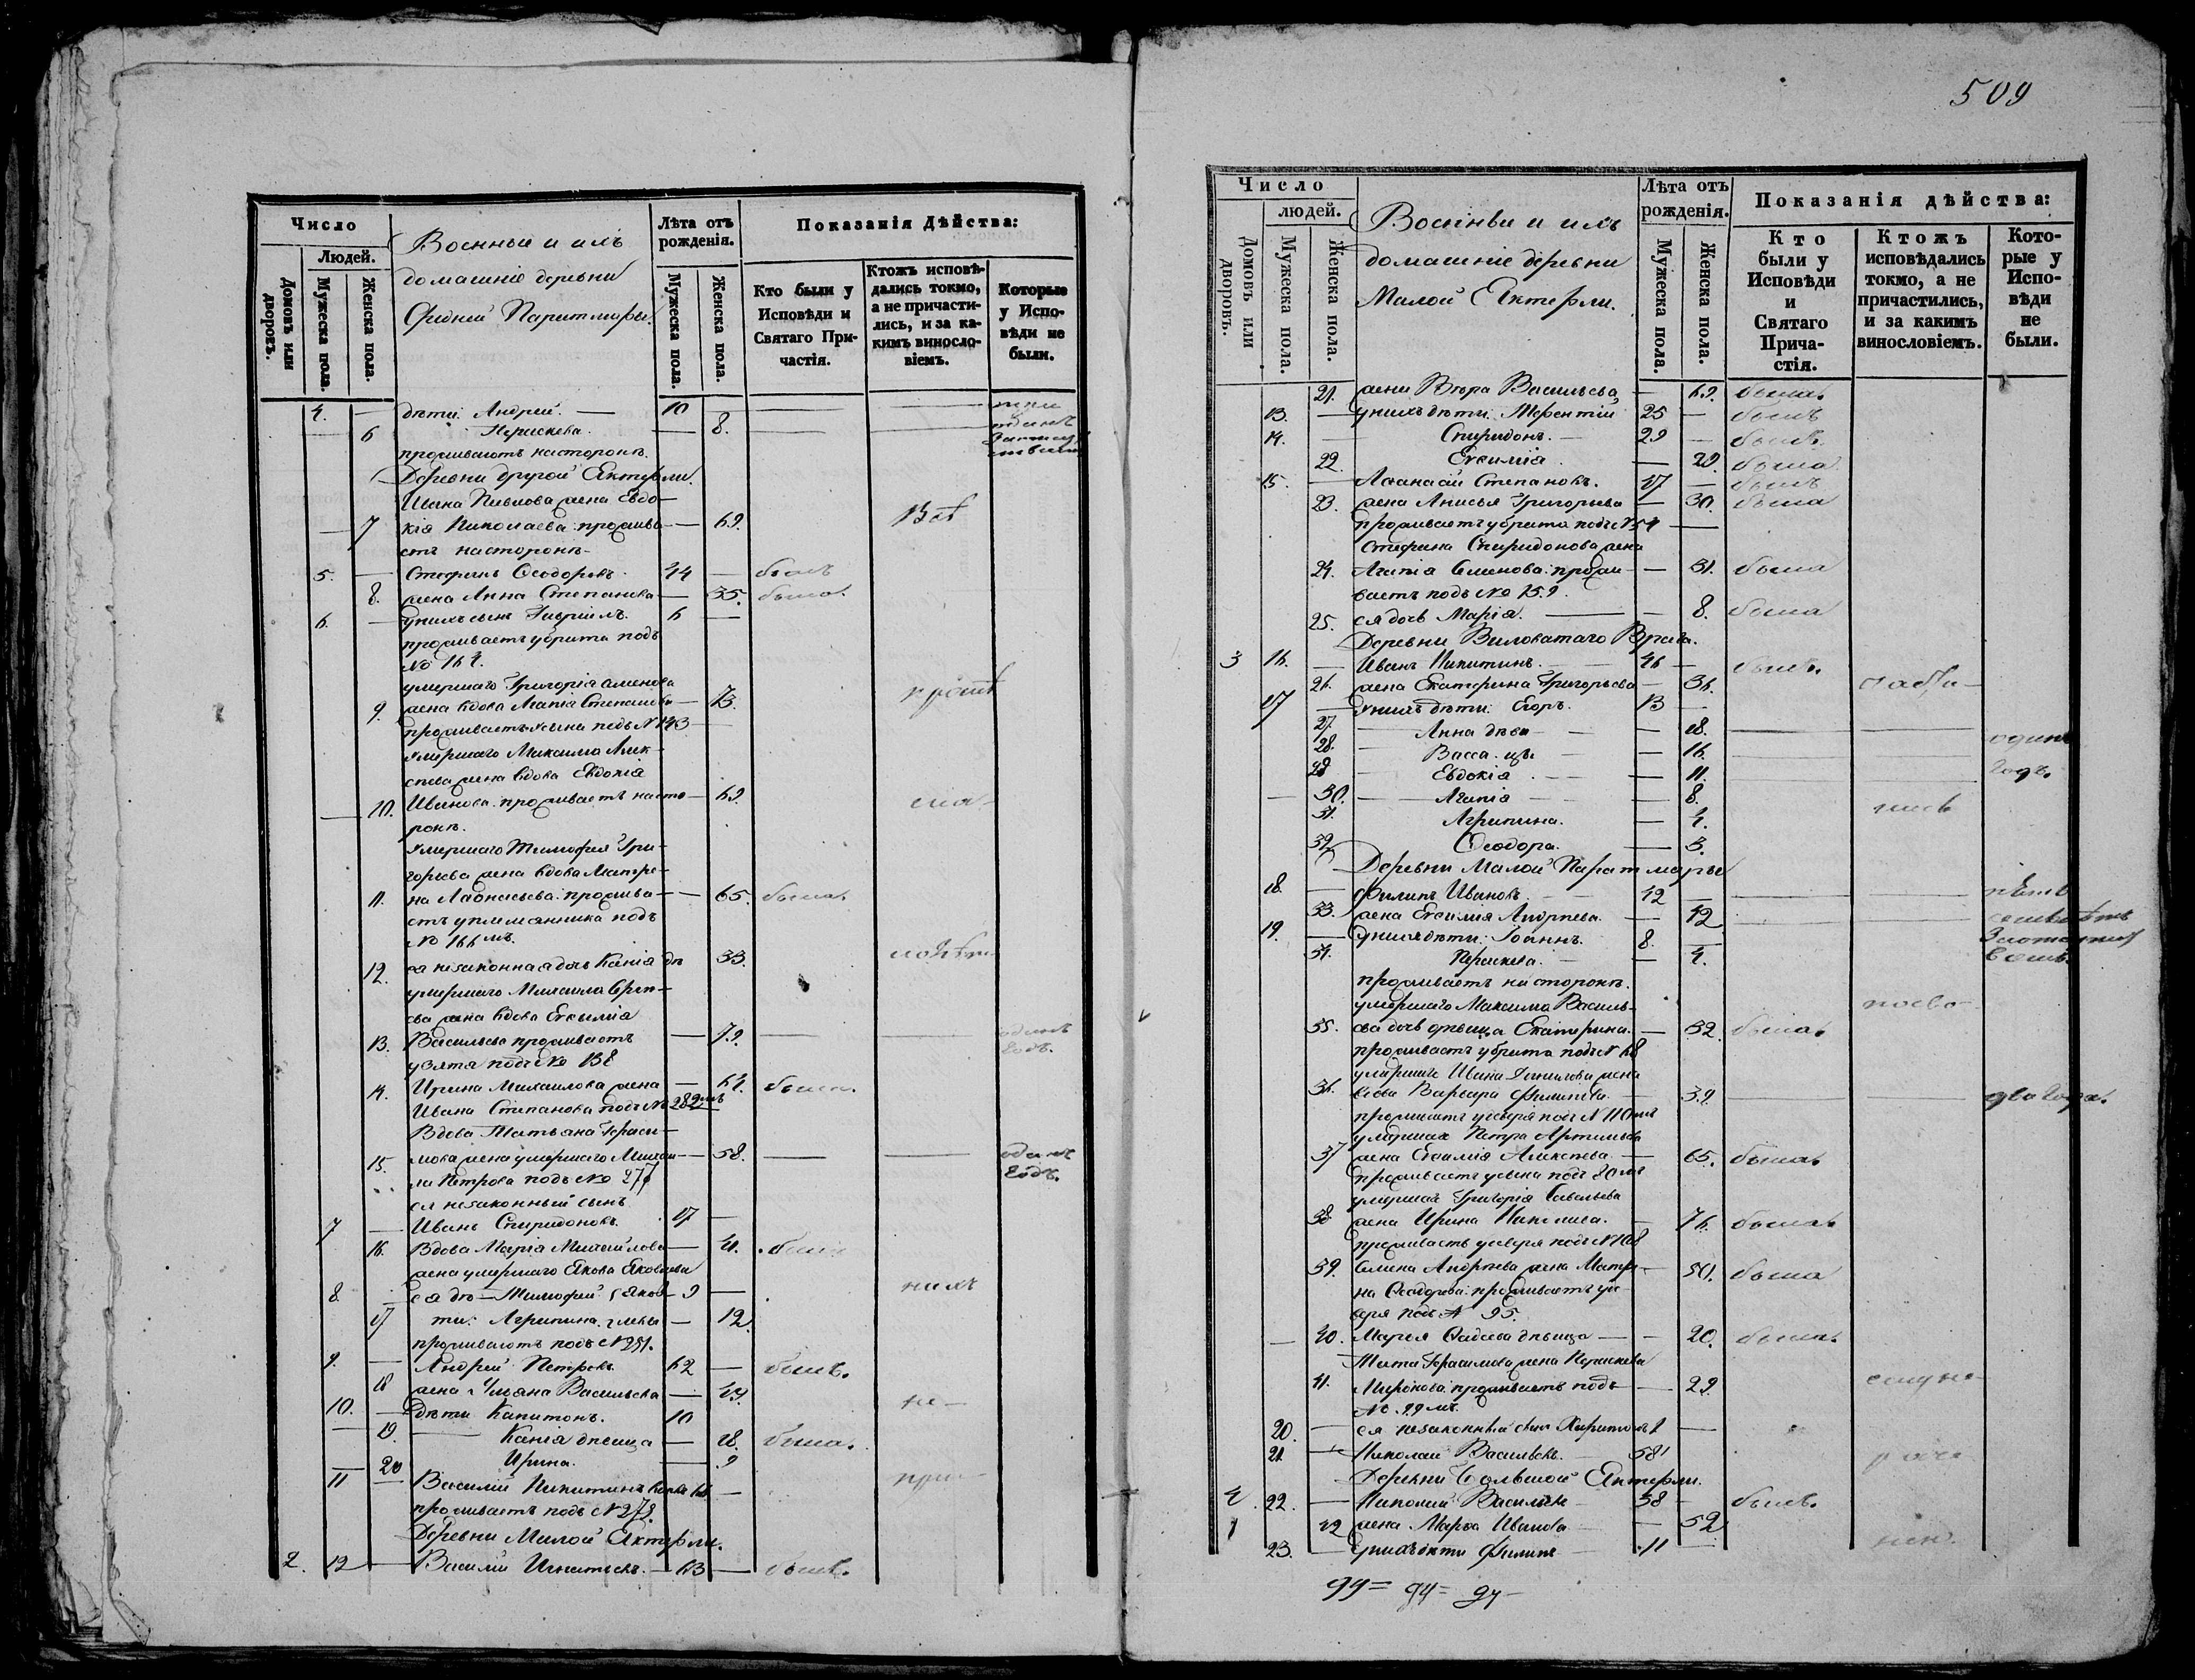 Число
Людей.
Домовъ или дворовъ.
Мужеска пола.
Женска пола.
Военные и ихъ
домашніе деревни
Средней Паратмары.
Лѣта отъ рожденія.
Мужеска пола.
Женска пола.
Показанія Дѣйства:
Кто были у Исповѣди и Святаго Причастія.
Ктожъ исповѣдались токмо, а не причастились, и за какимъ винословіемъ.
Которые у Исповѣди не были.
4. — дѣти: Андрей. — 10
— 6 Параскева. — 8.
проживаютъ на сторонѣ.
Деревни другой Яктерли.
Ивана Павлова жена Евдо-
— 7 кія Николаева: прожива- — 69.
етъ на сторонѣ-
5. — Стефанъ Ѳеодоровъ. 44 — былъ
8. жена Анна Степанова — 35. была.
6. — у нихъ сынъ Гавріилъ. 6 —
проживаетъ у брата подъ
№ 164.
умершаго Григорія Семенова
9. жена вдова Агапія Степанова — 73.
проживаетъ у сына подъ № 143
Умершаго Максима Алек-
сѣева жена вдова Евдокія
— 10. Иванова: проживаетъ на сто- — 69.
ронѣ.
Умершаго Тимофея Гри-
горьева жена вдова Матре-
11. на Аѳонасьева: прожива- — 65. была.
етъ у племянника подъ
№ 166мъ.
12. ея незаконная дочь Ксенія дѣ 33.
умершаго Михаила
жена вдова Евѳимія
13. Васильева проживаетъ — 79. — — одинъ годъ.
у зятя подъ № 138
14. Ирина Михаилова жена — 64. была.
Ивана Степанова подъ № 282мъ
Вдова Татьяна Гераси-
15. мова жена умершаго Михаи- — 58. — — одинъ годъ.
ла Петрова подъ № 277
ея незаконный сынъ
7 — Иванъ Спиридоновъ. 17 —
16. Вдова Марія Михайлова — 41. была
жена умершаго Якова Яковлева
8. — ея дѣ- Тимофей 9 —
17 ти: Агрипина — 12.
проживаютъ подъ № 251.
9. — Андрей Петровъ. 62 — былъ.
18 жена Ульяна Васильева — 44.
10. — дѣти Капитонъ. 10
— 19. Ксенія дѣвица — 18. была.
— 20 Ирина. — 9
11 — Василій Никитинъ 66 —
проживаетъ подъ № 278.
Деревни Малой Яктерли.
2. 12 — Василій Игнатьевъ. — 63 — былъ.
509
Число
людей.
Домовъ или дворовъ.
Мужеска пола.
Женска пола.
Военные и ихъ
домашніе деревни
Малой Яктерли.
Лѣта отъ рожденія.
Мужеска пола.
Женска пола.
Показанія дѣйства:
Кто были у Исповѣди и Святаго Причастія.
Ктожъ исповѣдались токмо, а не причастились, и за какимъ винословіемъ.
Которые у Исповѣди не были.
21. жена Вѣра Васильева — 69. была.
13. — у нихъ дѣти: Терентій 25 — былъ
14. — Спиридонъ. — 29 — былъ.
22. Евѳимія. — 20. была
15. — Аѳанасій Степановъ. 17 — былъ
23. жена Анисья Григорьева — 30. была
проживаетъ у брата подъ № 54 —
Стефана Спиридонова жена
24. Агапія Семенова: прожи- — 31. была
ваетъ подъ № 159.
25. ея дочь Марія. — — 8. была
Деревни Виловатаго Врага.
3 16. — Иванъ Никитинъ. — 46 — былъ.
26. жена Екатерина Григорьева — 36.
17 — У нихъ дѣти: Егоръ. 13 —
27. — Анна дѣви- — 18. — —
28. — Васса цы — 16. одинъ
29 — Евдокія. — 11. годъ.
— 30. — Агапія — 8.
31. Агрипина. — 4.
32 Ѳеодора. — 3.
Деревни Малой Паратмары
18. — Филипъ Ивановъ. — 42 — —
33. жена Евѳимія Андреева. — 42
19. — у нихъ дѣти: Іоаннъ. 8. —
34. Параскева. — 4.
проживаетъ на сторонѣ.
умершаго Максима Василь-
35. ева дочь дѣвица Екатерина. — 32. была.
проживаетъ у брата подъ № 68
умершаго Ивана Данилова жена
36. вдова Варвара Филипова — 39. — — два года.
проживаетъ у свекра подъ № 110мъ
умершаго Петра Артемьева
37 жена Евѳимія Алексѣева — 65. была.
проживаетъ у сына подъ 80мъ
умершаго Григорія Савельева
38 жена Ирина — 76. была.
проживаетъ у свекра подъ № 108
39. Семена Андреева жена Матре- — 50. была
на Ѳеодорова: проживаетъ у све-
кра подъ № 95.
— 40. Марья Ѳадѣева дѣвица — — 20. была.
Тита Герасимова жена Параскева
41. Миронова: проживаетъ подъ — 29.
№ 99мъ.
20. — ея незаконный сынъ Харитонъ 1 —
21. — Николай Васильевъ. 58
Деревни Большой Яктерли.
4. 22. — Николай Васильевъ 58 — былъ.
42 жена Марѳа Иванова — 52
23. — У нихъ дѣти Филипъ — 11 —